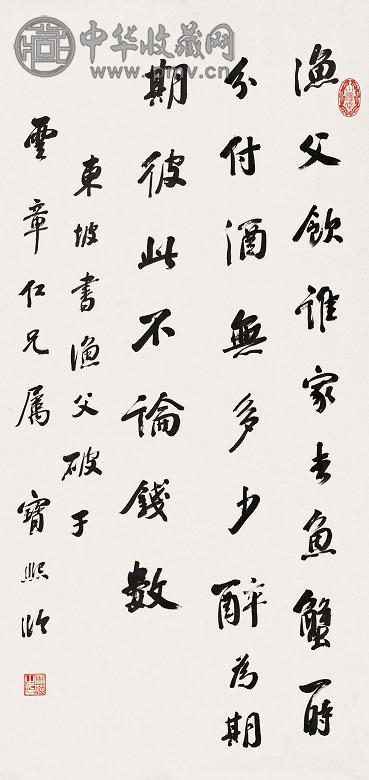 中华收藏网
漁父飲誰家去魚蟹一時
分付酒無多少醉為期
期彼此不論錢數
東坡書漁父破子
雲章仁兄屬 寶熙臨